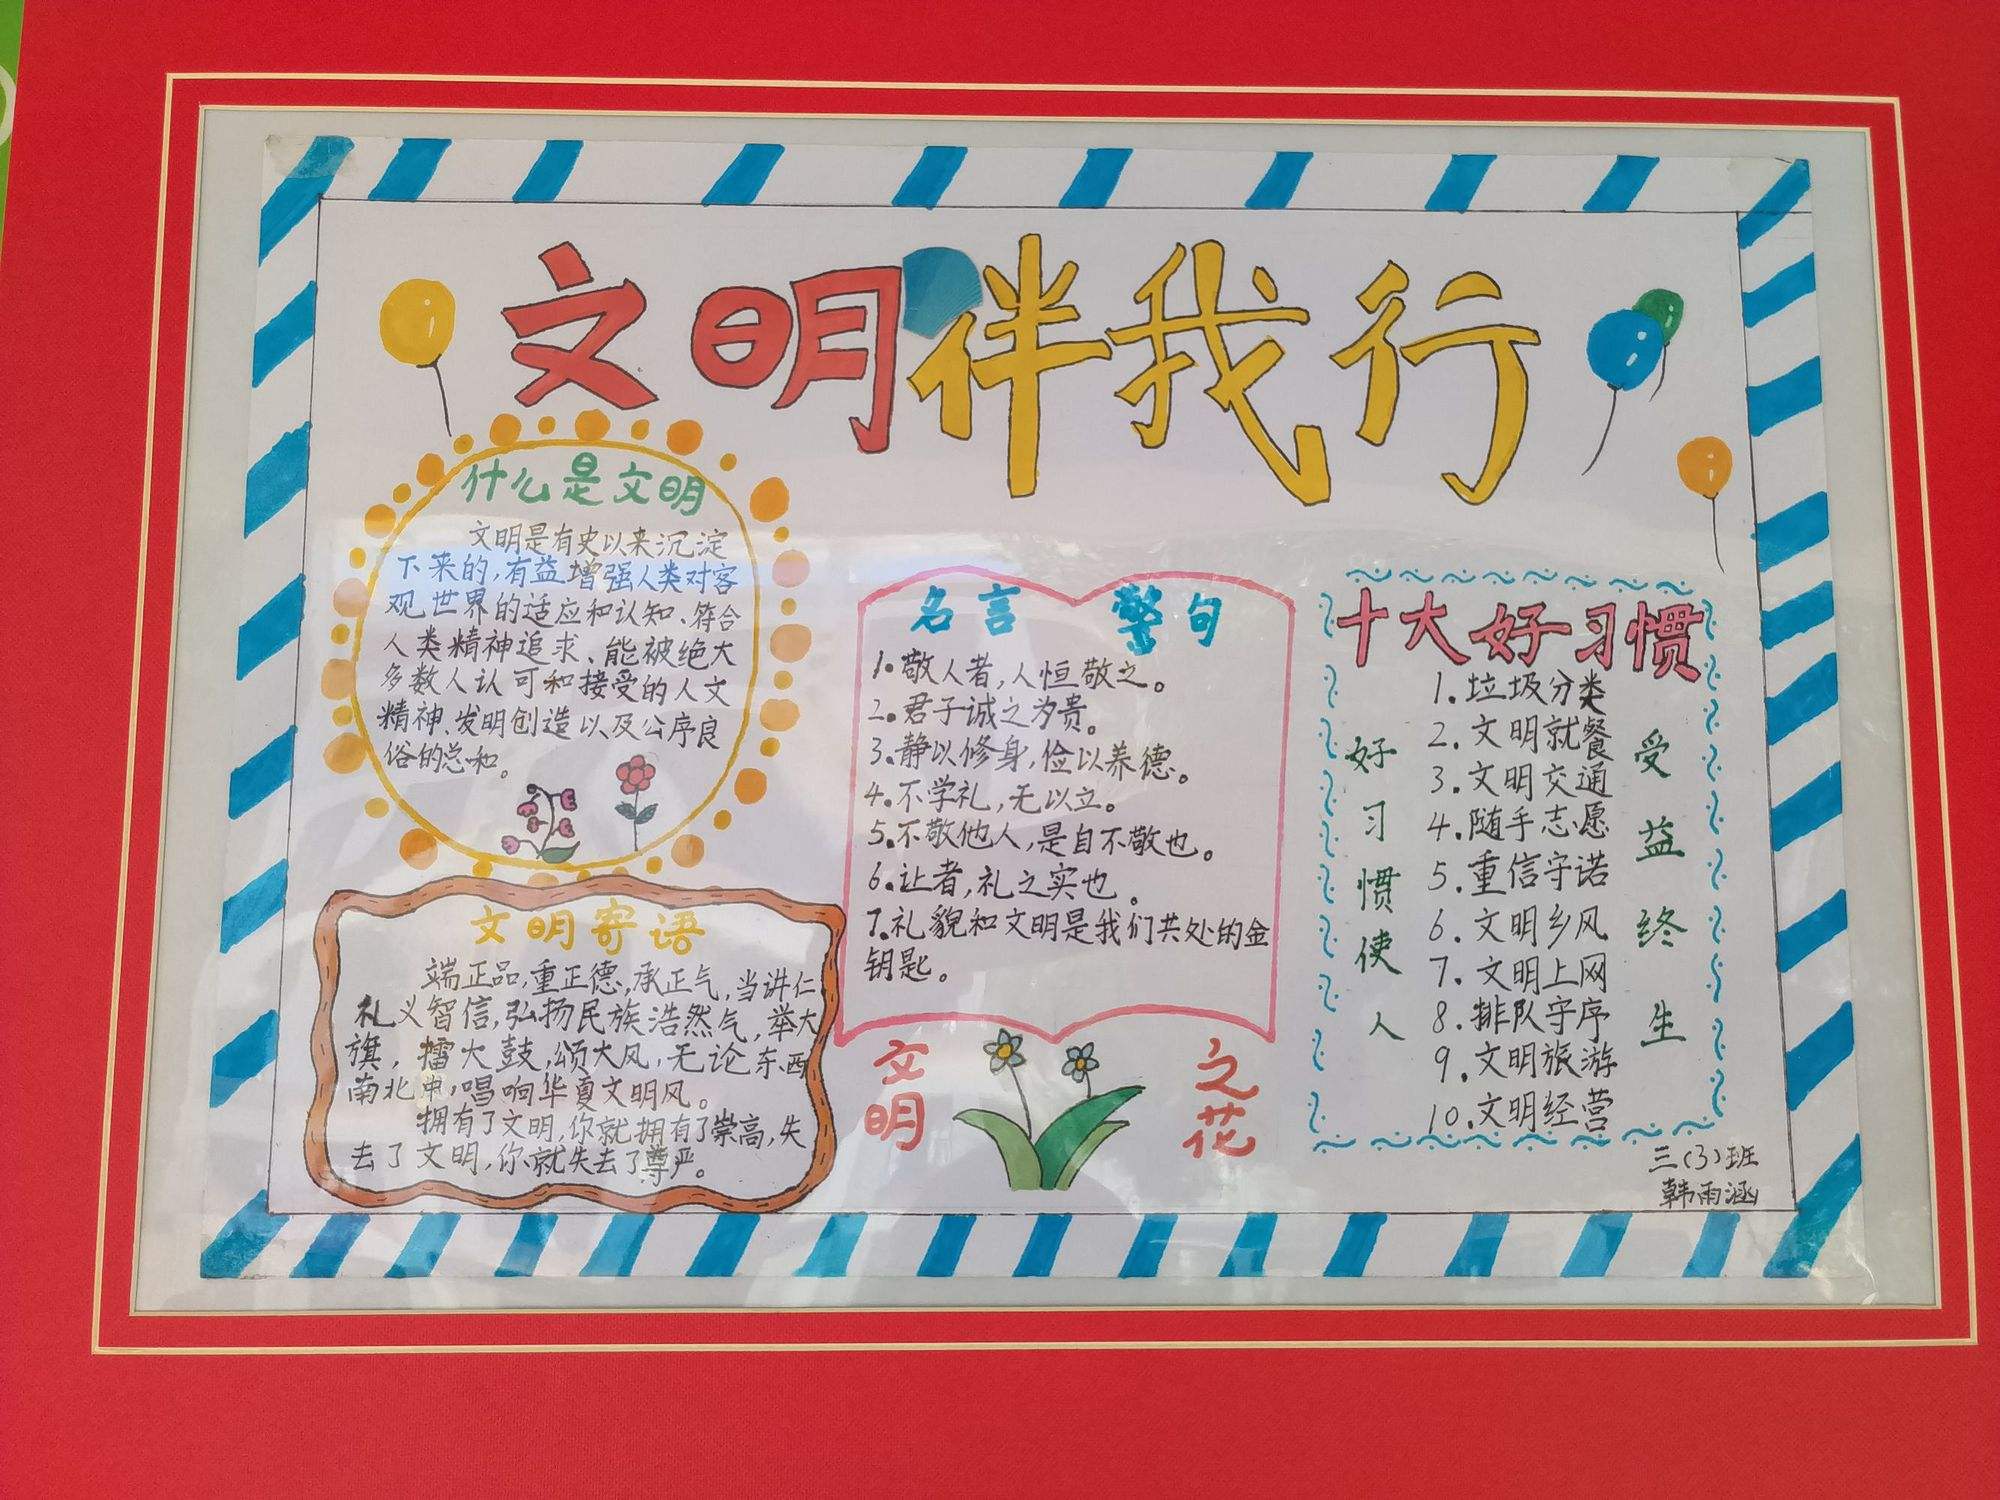 文明伴我行
什么是文明
文明是有史以来沉淀
下来的,有益增强人类对客
观世界的适应和认知、符合
人类精神追求、能被绝大
多数人认可和接受的人文
精神、发明创造以及公序良
俗的总和。
文明寄语
端正品,重正德,承正气,当讲仁
礼义智信,弘扬民族浩然气,举大
旗,擂大鼓,颂大风,无论东西
南北中,唱响华夏文明风。
拥有了文明,你就拥有了崇高,失
去了文明,你就失去了尊严。
名言 警句
1.敬人者,人恒敬之。
2.君子诚之为贵。
3.静以修身,俭以养德。
4.不学礼,无以立。
5.不敬他人,是自不敬也。
6.让者,礼之实也。
7.礼貌和文明是我们共处的金
钥匙。
文明
之花
十大好习惯
好习惯使人
1.垃圾分类
2.文明就餐
3.文明交通
4.随手志愿
5.重信守诺
6.文明乡风
7.文明上网
8.排队守序
9.文明旅游
10.文明经营
受益终生
三(3)班
韩雨涵